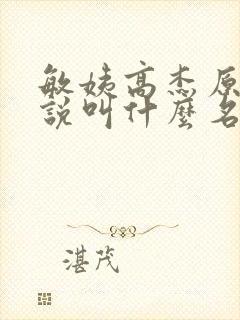 敏姨高杰原
說叫什麼名
湛茂